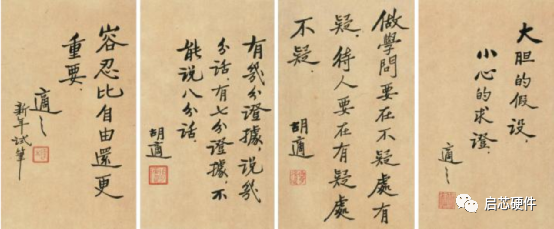 大胆的假設，
小心的求證。
適之
做學問要在不疑處有
疑，待人要在有疑處
不疑。
胡適
有幾分證據，說幾
分話，有七分證據，不
能說八分話
胡適
容忍比自由還更
重要。
適之
新年試筆
启芯硬件